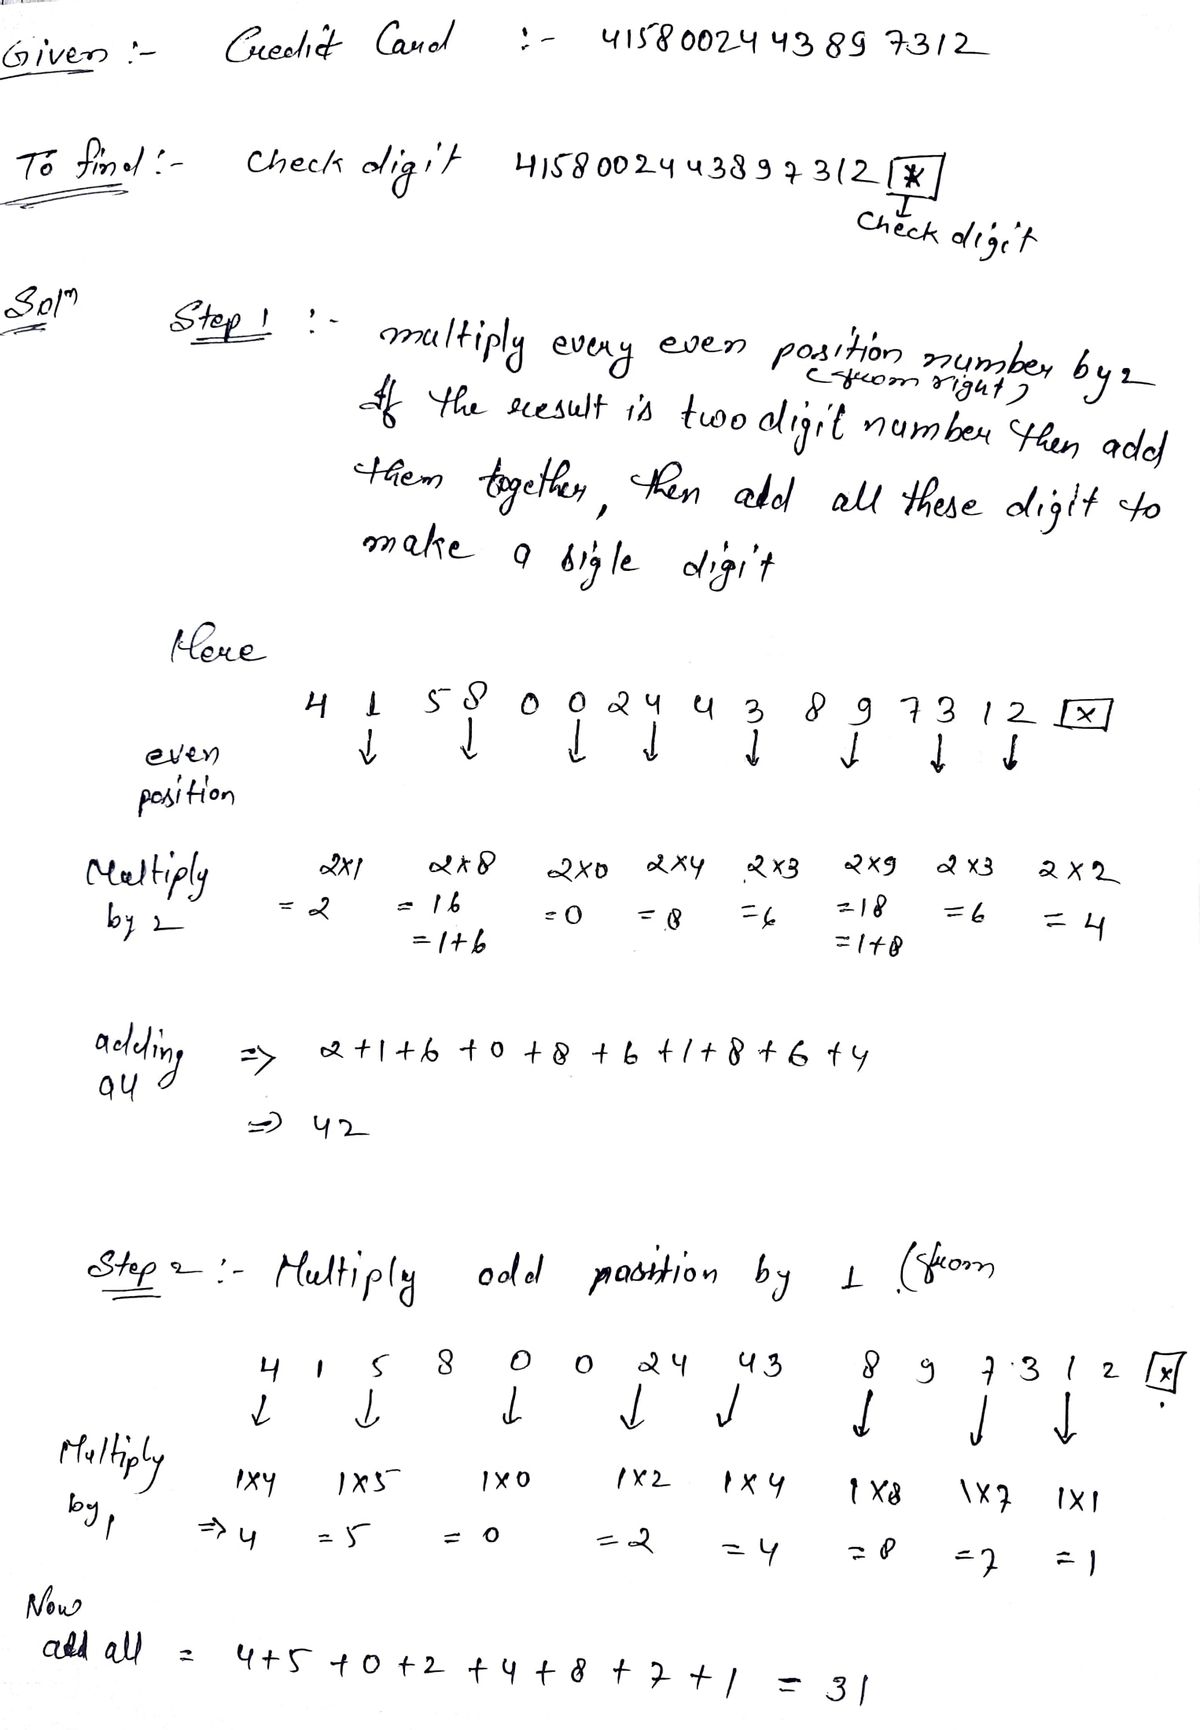 Given :- Credit Card :- 4158002443897312
To find :- Check digit 4158002443897312 *
Check digit
Solⁿ Step 1 :- multiply every even position number by 2
(from right)
If the result is two digit number then add
them together, then add all these digit to
make a sigle digit
Here
4 1 5 8 0 0 2 4 4 3 8 9 7 3 1 2 x
↓ ↓ ↓ ↓ ↓ ↓ ↓ ↓
even
position
Multiply 2x1 2x8 2x0 2x4 2x3 2x9 2x3 2x2
by 2 = 2 = 16 = 0 = 8 = 6 = 18 = 6 = 4
= 1+6 = 1+8
adding => 2+1+6+0+8+6+1+8+6+4
all
=> 42
Step 2 :- Multiply odd position by 1 (from
4 1 5 8 0 0 2 4 4 3 8 9 7 3 1 2 x
↓ ↓ ↓ ↓ ↓ ↓ ↓ ↓
Multiply 1x4 1x5 1x0 1x2 1x4 1x8 1x7 1x1
by 1 => 4 = 5 = 0 = 2 = 4 = 8 = 7 = 1
Now
add all = 4+5+0+2+4+8+7+1 = 31